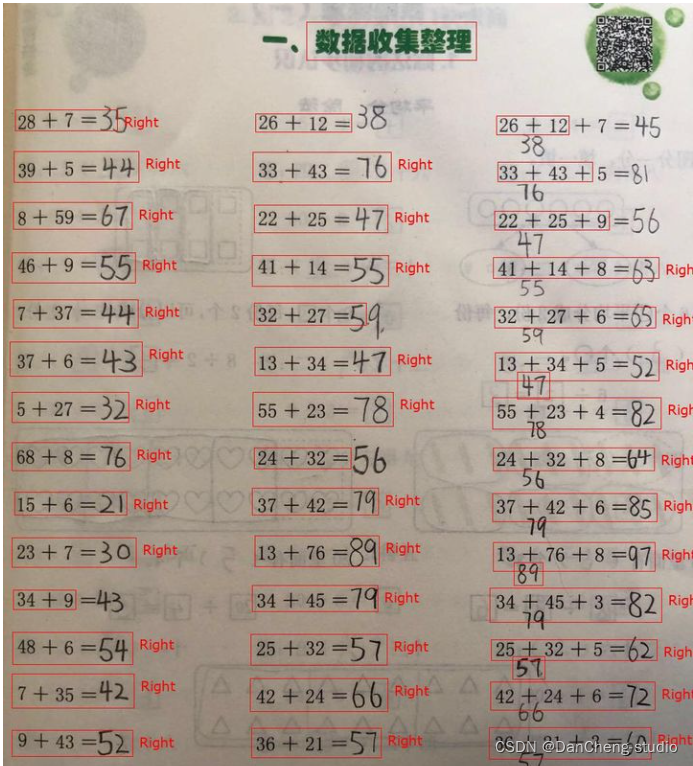 一、数据收集整理
28 + 7 = 35 Right 26 + 12 = 38 26 + 12 + 7 = 45
38
39 + 5 = 44 Right 33 + 43 = 76 Right 33 + 43 + 5 = 81
76
8 + 59 = 67 Right 22 + 25 = 47 Right 22 + 25 + 9 = 56
47
46 + 9 = 55 Right 41 + 14 = 55 Right 41 + 14 + 8 = 63 Righ
55
7 + 37 = 44 Right 32 + 27 = 59 32 + 27 + 6 = 65 Righ
59
37 + 6 = 43 Right 13 + 34 = 47 Right 13 + 34 + 5 = 52 Righ
47
5 + 27 = 32 Right 55 + 23 = 78 Right 55 + 23 + 4 = 82 Righ
78
68 + 8 = 76 Right 24 + 32 = 56 24 + 32 + 8 = 64 Righ
56
15 + 6 = 21 Right 37 + 42 = 79 Right 37 + 42 + 6 = 85 Righ
79
23 + 7 = 30 Right 13 + 76 = 89 Right 13 + 76 + 8 = 97 Righ
89
34 + 9 = 43 34 + 45 = 79 Right 34 + 45 + 3 = 82 Righ
79
48 + 6 = 54 Right 25 + 32 = 57 Right 25 + 32 + 5 = 62 Righ
57
7 + 35 = 42 Right 42 + 24 = 66 Right 42 + 24 + 6 = 72 Righ
66
9 + 43 = 52 Right 36 + 21 = 57 Right
CSDN @DanCheng-studio
57